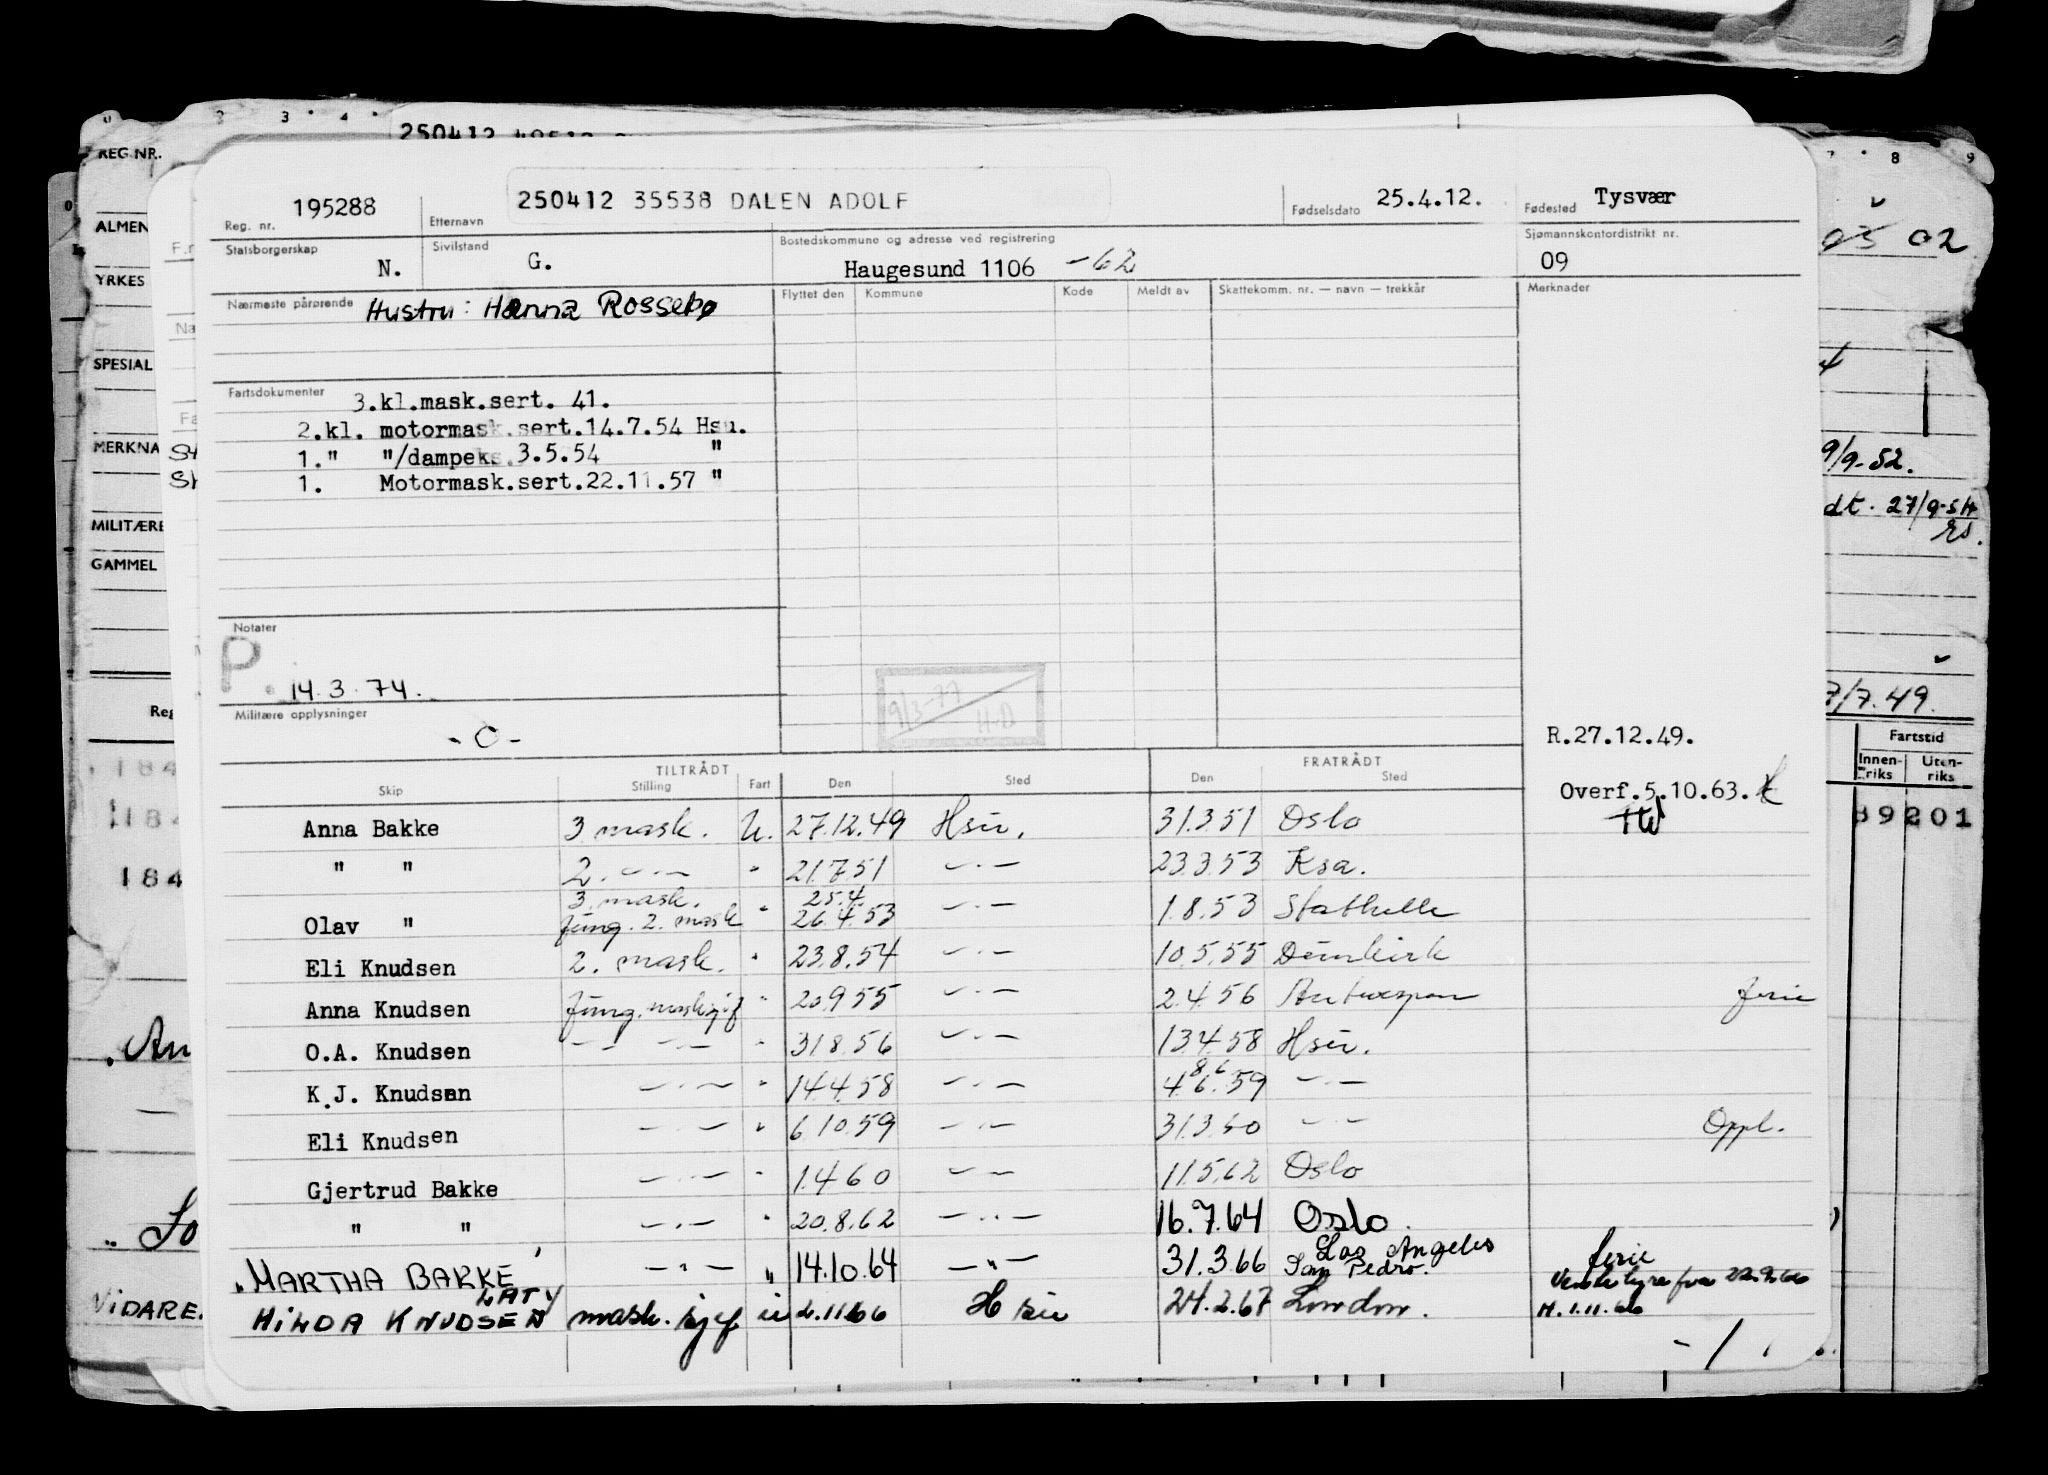 0 2 3 4 7 8 9
250412
REG.NR.
ALMEN
YRKES
SPESIAL
MERKNA
MILITÆRE
GAMMEL
195288
Reg. nr.
Etternavn
250412 35538 DALEN ADOLF
Fødselsdato 25.4.12.
Fødested Tysvær
Statsborgerskap N.
Sivilstand G.
Bostedskommune og adresse ved registrering
Haugesund 1106 -62
Sjømannskontordistrikt nr.
09
02
Nærmeste pårørende Hustru: Hanna Rossebø
Flyttet den Kommune Kode Meldt av Skattekomm. nr. — navn — trekkår Merknader
Fartsdokumenter
3.kl.mask.sert. 41.
2.kl. motormask.sert.14.7.54 Hsu.
1." "/dampeks.3.5.54 "
1. Motormask.sert.22.11.57 "
9/9-52.
dt. 27/9-54
Notater
P.
14.3.74.
9/3-77
H.D
Militære opplysninger
- O -
7/7.49.
R.27.12.49.
Overf.5.10.63.
Fartstid
Innenriks Utenriks
89201
184
184
184
TILTRÅDT FRATRÅDT
Skip Stilling Fart Den Sted Den Sted
Anna Bakke 3 mask. U. 27.12.49 Hsu. 31.3.51 Oslo
" " 2. —·— " 21.7.51 —·— 23.3.53 Ksa.
3. mask. 25.4
Olav " fung. 2. mask " 26.4.53 —·— 1.8.53 Stathelle
Eli Knudsen 2. mask. " 23.8.54 —·— 10.5.55 Dunkirk
Anna Knudsen fung. masksjef " 20.9.55 —·— 2.4.56 Antwerpen ferie
O.A. Knudsen —·— " 31.8.56 —·— 13.4.58 Hsu.
K.J. Knudsen —·— " 14.4.58 —·— 4.6.59 —·—
8.6
Eli Knudsen —·— " 6.10.59 —·— 31.3.60 —·— Oppl.
Gjertrud Bakke —·— " 1.4.60 —·— 11.5.62 Oslo
" " —·— " 20.8.62 —·— 16.7.64 Oslo.
MARTHA BAKKE —"— " 14.10.64 —"— 31.3.66 Los Angeles San Pedro. ferie
HILDA KNUDSEN mask.sjef u 2.11.66 Hsu 24.2.67 London. M. 1.11.66
VIDARE